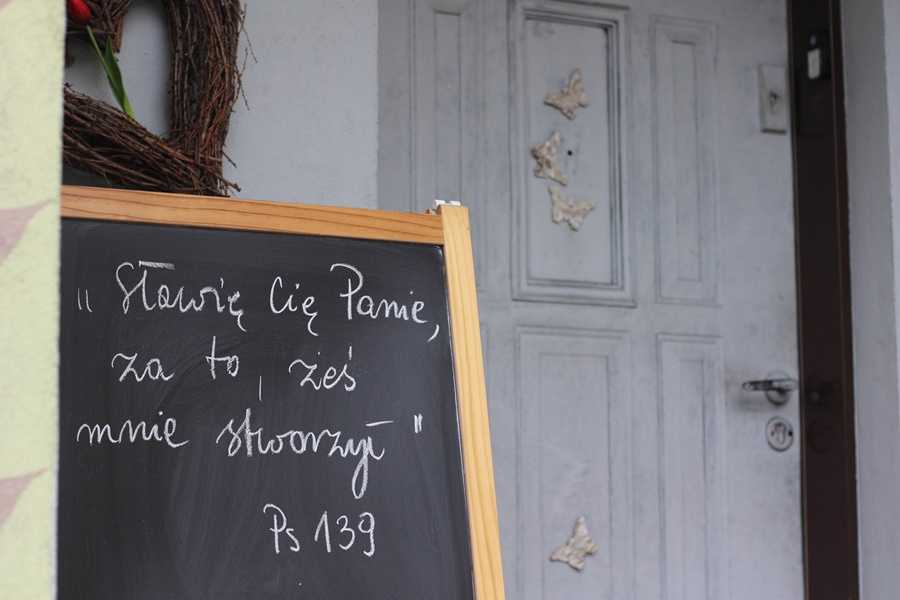 "Sławię Cię Panie,
za to, żeś
mnie stworzył"
Ps 139